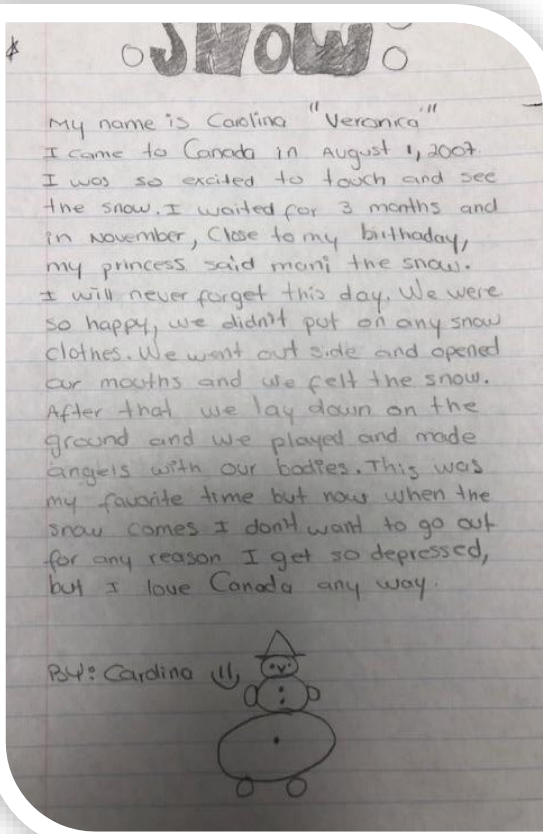 SNOW
My name is Carolina "Veronica"
I came to Canada in August 1, 2007.
I was so excited to touch and see
the snow. I waited for 3 months and
in November, Close to my birthaday,
my princess said mami the snow.
I will never forget this day. We were
so happy, we didn't put on any snow
clothes. We went out side and opened
our mouths and we felt the snow.
After that we lay down on the
ground and we played and made
angels with our bodies. This was
my favorite time but now when the
snow comes I don't want to go out
for any reason I get so depressed,
but I love Canada any way.
BY: Carolina